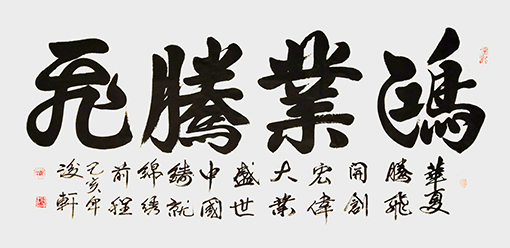 鴻業騰飛
華夏
騰飛
開創
宏偉
大業
盛世
中國
鑄就
錦綉
前程
己亥年
浚軒